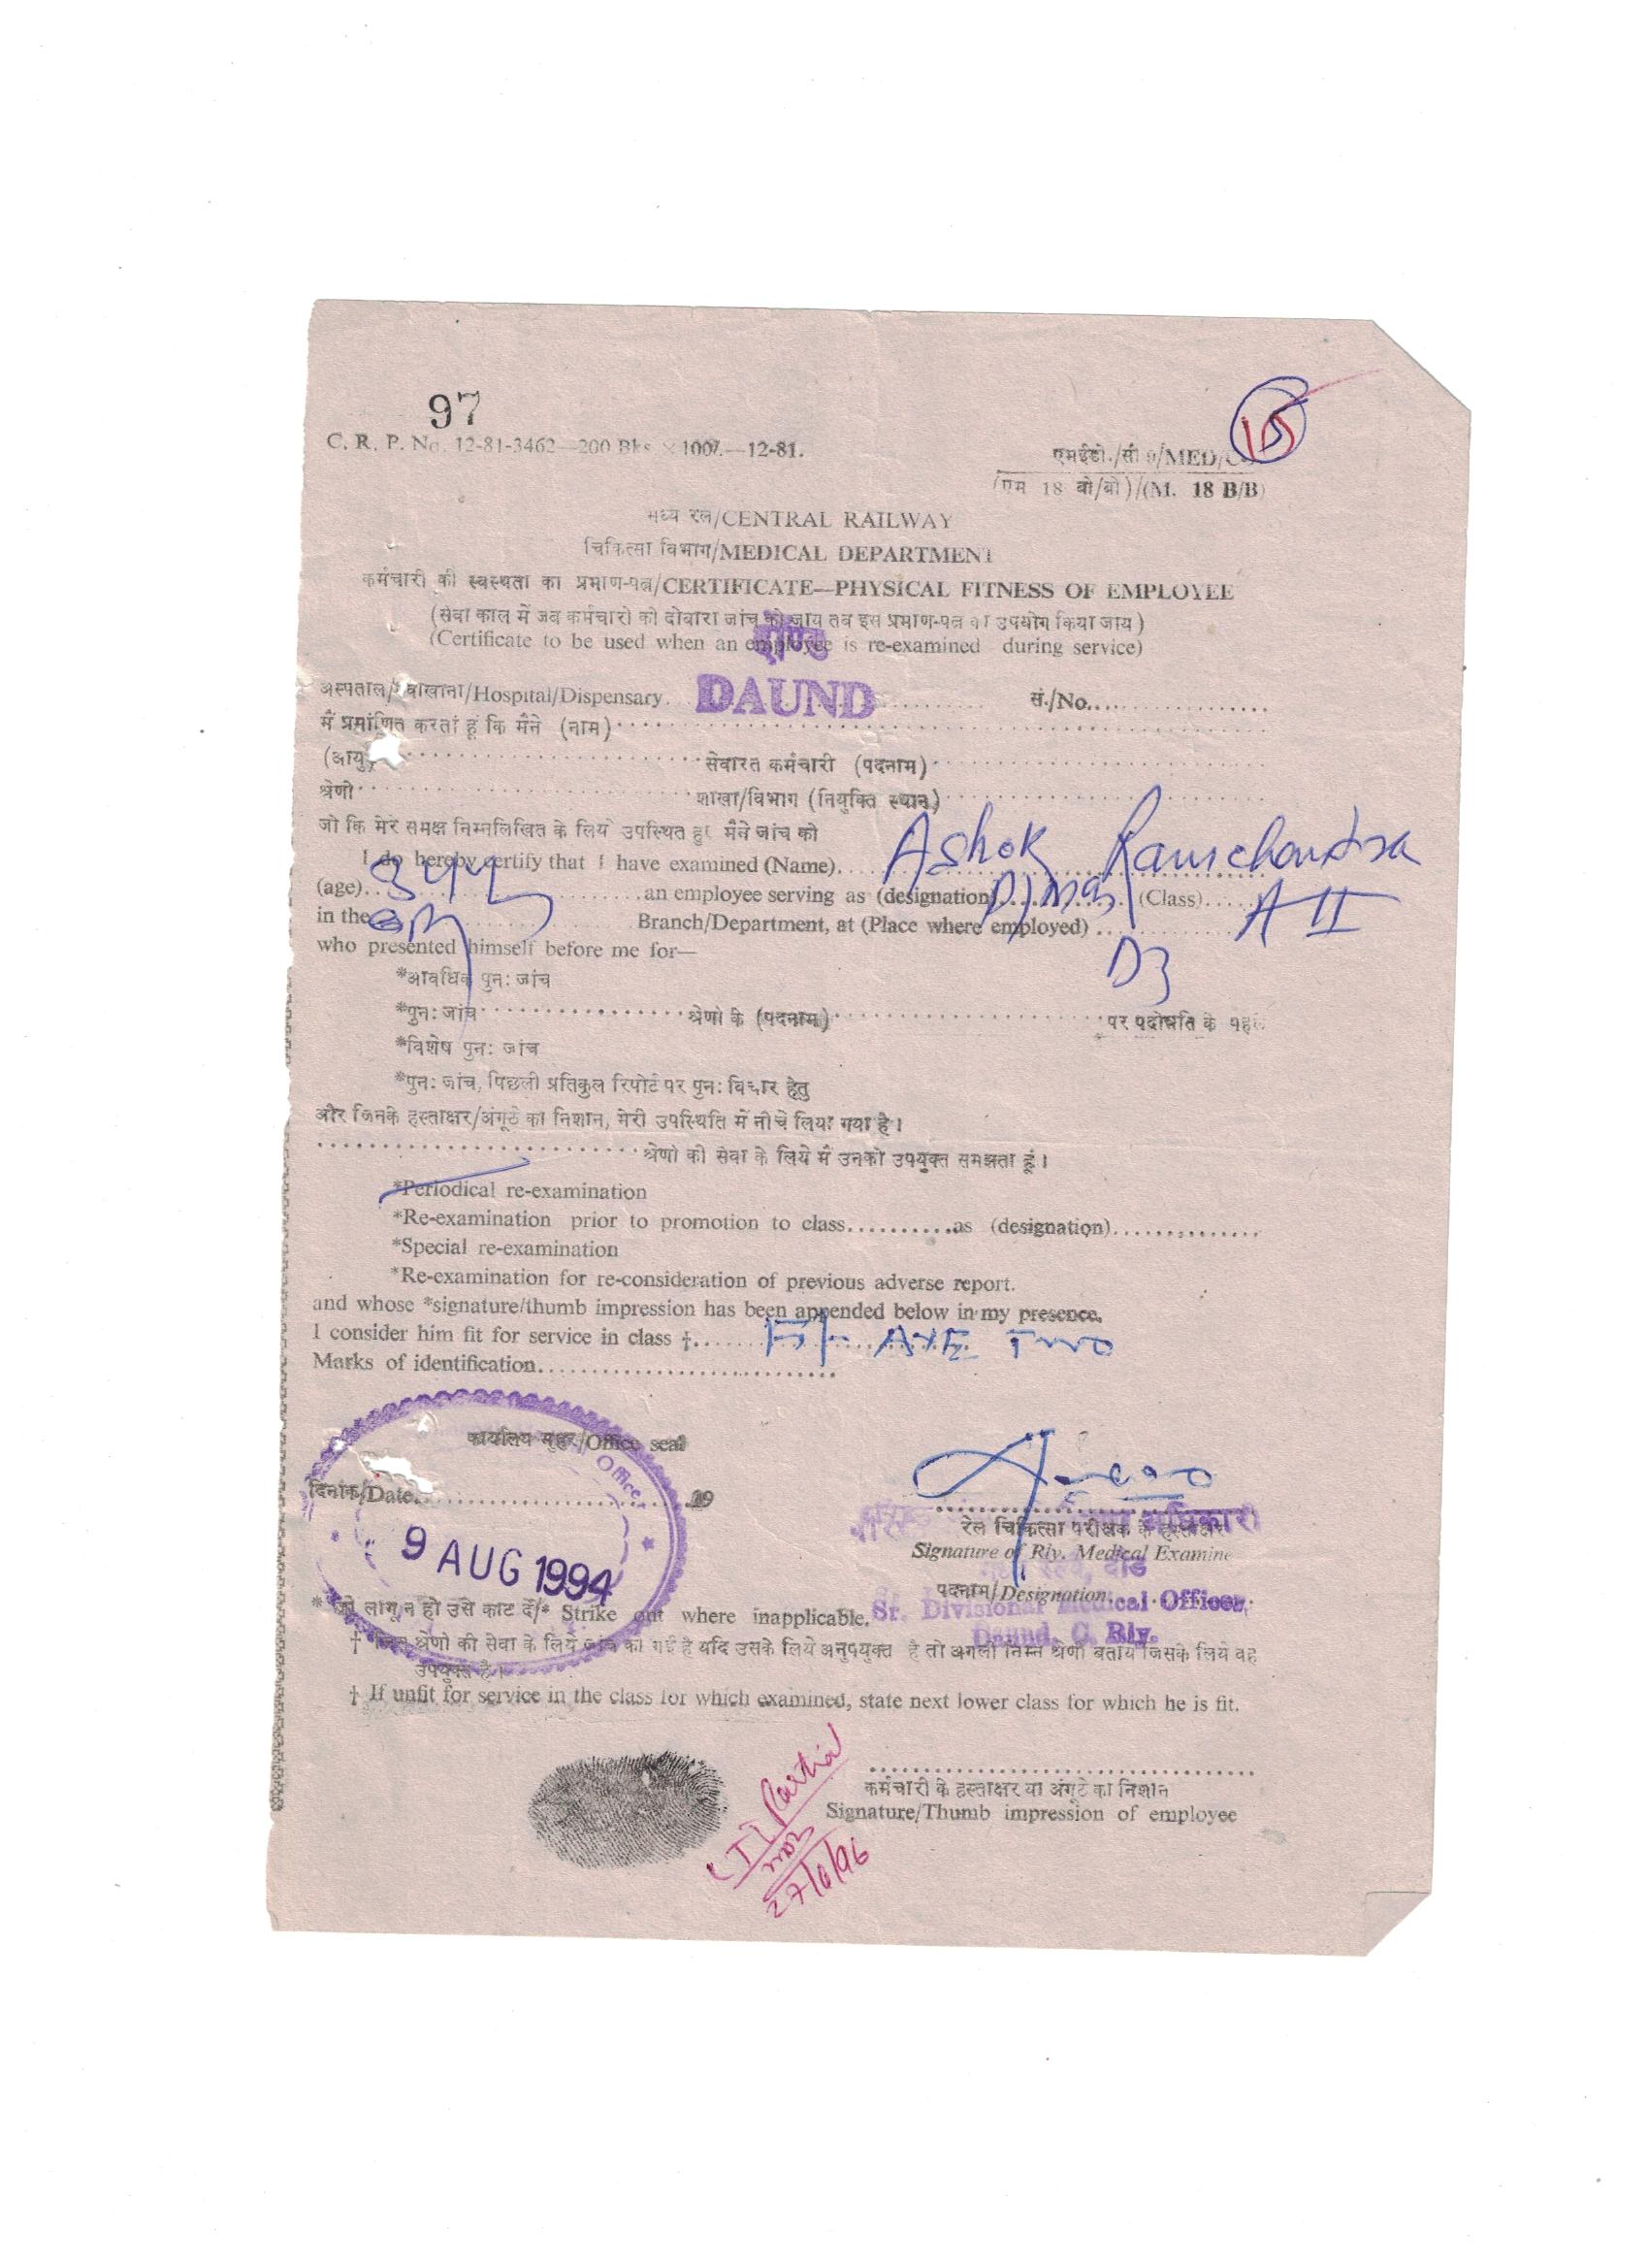 97
C. R. P. No. 12-81-3462—200 Bks × 100/.—12-81.
15
एमईडी./सी 9/MED/
(एम 18 बी/बी)/(M. 18 B/B)
मध्य रेल/CENTRAL RAILWAY
चिकित्सा विभाग/MEDICAL DEPARTMENT
कर्मचारी की स्वस्थता का प्रमाण-पत्र/CERTIFICATE—PHYSICAL FITNESS OF EMPLOYEE
(सेवा काल में जब कर्मचारी की दोबारा जांच की जाय तब इस प्रमाण-पत्र का उपयोग किया जाय)
(Certificate to be used when an employee is re-examined during service)
दौण्ड
अस्पताल/दवाखाना/Hospital/Dispensary. DAUND सं./No..................
मैं प्रमाणित करता हूं कि मैंने (नाम)
(आयु) सेवारत कर्मचारी (पदनाम)
श्रेणी शाखा/विभाग (नियुक्ति स्थान)
जो कि मेरे समक्ष निम्नलिखित के लिये उपस्थित हुए मैंने जांच की
I do hereby certify that I have examined (Name). Ashok Ramchandra
(age). an employee serving as (designation) (Class) A II
in the Branch/Department, at (Place where employed) D3
who presented himself before me for—
*आवधिक पुन: जांच
*पुन: जांच श्रेणी के (पदनाम) पर पदोन्नति के पहले
*विशेष पुन: जांच
*पुन: जांच, पिछली प्रतिकुल रिपोर्ट पर पुन: विचार हेतु
और जिनके हस्ताक्षर/अंगूठे का निशान, मेरी उपस्थिति में नीचे लिया गया है।
श्रेणी की सेवा के लिये मैं उनको उपयुक्त समझता हूं।
*Periodical re-examination
*Re-examination prior to promotion to class..........as (designation)..............
*Special re-examination
*Re-examination for re-consideration of previous adverse report.
and whose *signature/thumb impression has been appended below in my presence.
I consider him fit for service in class †. Fit AYE TWO
Marks of identification..............................
कार्यालय मुहर/Office seal
Officer
दिनांक/Date. 19
9 AUG 1994
रेल चिकित्सा परीक्षक के हस्ताक्षर
Signature of Rly. Medical Examine
पदनाम/Designation
Sr. Divisional Medical Officer,
Daund, C. Rly.
* जो लागू न हो उसे काट दें/* Strike out where inapplicable.
† जिस श्रेणी की सेवा के लिये जांच की गई है यदि उसके लिये अनुपयुक्त है तो अगली निम्न श्रेणी बताये जिसके लिये वह
उपयुक्त है।
† If unfit for service in the class for which examined, state next lower class for which he is fit.
27/6/96
कर्मचारी के हस्ताक्षर या अंगूठे का निशान
Signature/Thumb impression of employee